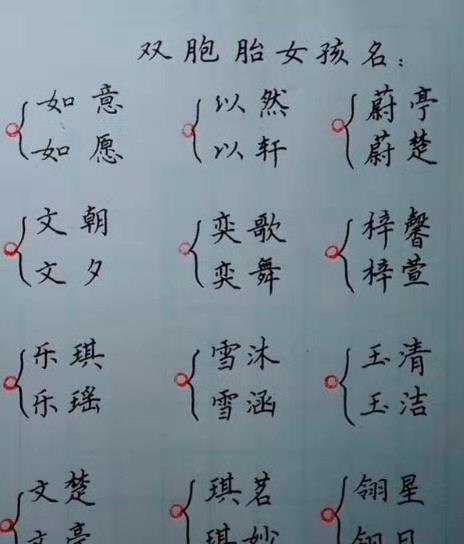 双胞胎女孩名：
如意 以然 蔚亭
如愿 以轩 蔚楚
文朝 奕歌 梓馨
文夕 奕舞 梓萱
乐琪 雪沐 玉清
乐瑶 雪涵 玉洁
文楚 琪茗 翎星
文亭 琪妙 翎日